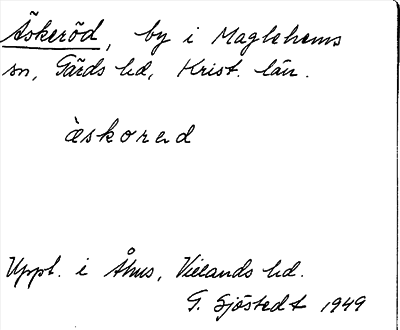 Äskeröd, by i Maglehems
sn, Gärds hd, Krist. län.
ä̀skorǝd
Uppt. i Åhus, Villands hd.
G. Sjöstedt 1949